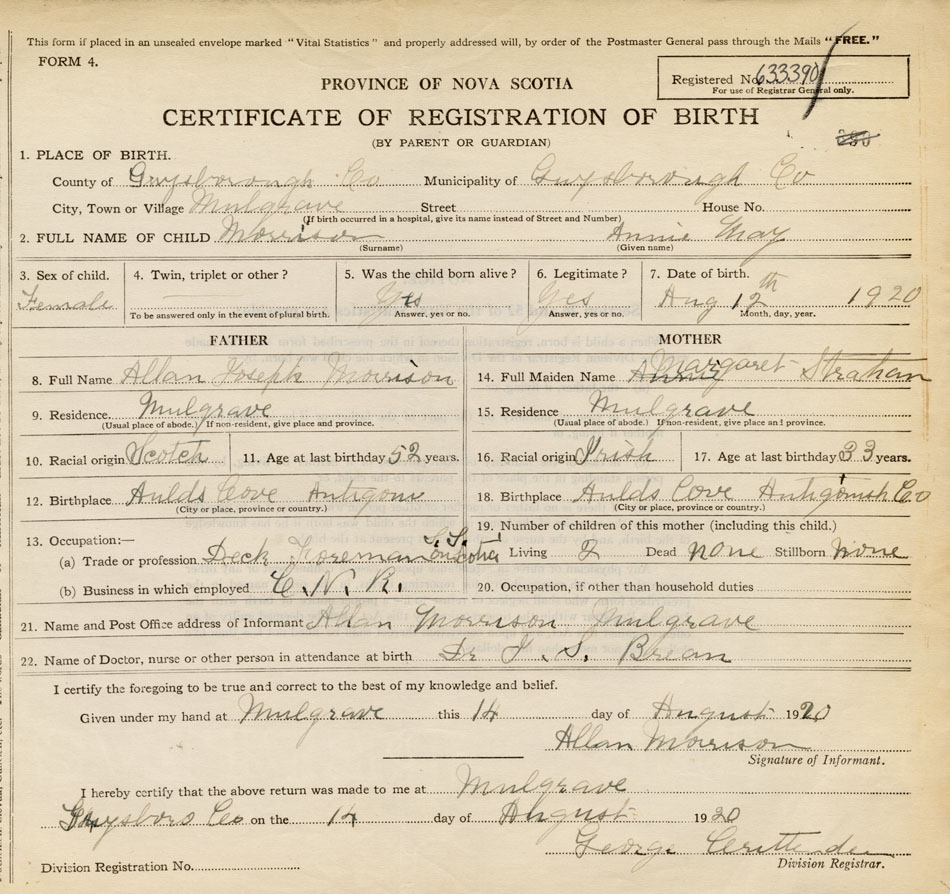 This form if placed in an unsealed envelope marked "Vital Statistics" and properly addressed will, by order of the Postmaster General pass through the Mails "FREE."
FORM 4.
Registered No. 633390
For use of Registrar General only.
PROVINCE OF NOVA SCOTIA
CERTIFICATE OF REGISTRATION OF BIRTH
(BY PARENT OR GUARDIAN)
1. PLACE OF BIRTH.
County of Guysborough Co Municipality of Guysborough Co
City, Town or Village Mulgrave Street House No.
(If birth occurred in a hospital, give its name instead of Street and Number)
2. FULL NAME OF CHILD Morrison Annie May
(Surname) (Given name)
3. Sex of child. 4. Twin, triplet or other? 5. Was the child born alive? 6. Legitimate? 7. Date of birth.
Female Yes Yes Aug 12th 1920
To be answered only in the event of plural birth. Answer, yes or no. Answer, yes or no. Month, day, year.
FATHER MOTHER
8. Full Name Allan Joseph Morrison
14. Full Maiden Name Annie Margaret Strahan
9. Residence. Mulgrave
15. Residence Mulgrave
(Usual place of abode.) If non-resident, give place and province.
(Usual place of abode.) If non-resident, give place and province.
10. Racial origin Scotch 11. Age at last birthday 52 years.
16. Racial origin Irish 17. Age at last birthday 33 years.
12. Birthplace Aulds Cove Antigoni
18. Birthplace Aulds Cove Antigonish Co
(City or place, province or country.)
(City or place, province or country.)
13. Occupation:—
19. Number of children of this mother (including this child.)
(a) Trade or profession Deck Foreman on S.S. Scotia
Living 2 Dead none Stillborn none
(b) Business in which employed C. N. R.
20. Occupation, if other than household duties
21. Name and Post Office address of Informant Allan Morrison Mulgrave
22. Name of Doctor, nurse or other person in attendance at birth Dr S.
I certify the foregoing to be true and correct to the best of my knowledge and belief.
Given under my hand at Mulgrave this 14 day of August 1920
Allan Morrison
Signature of Informant.
I hereby certify that the above return was made to me at Mulgrave
Guysboro Co on the 14 day of August 1920
George
Division Registration No. Division Registrar.